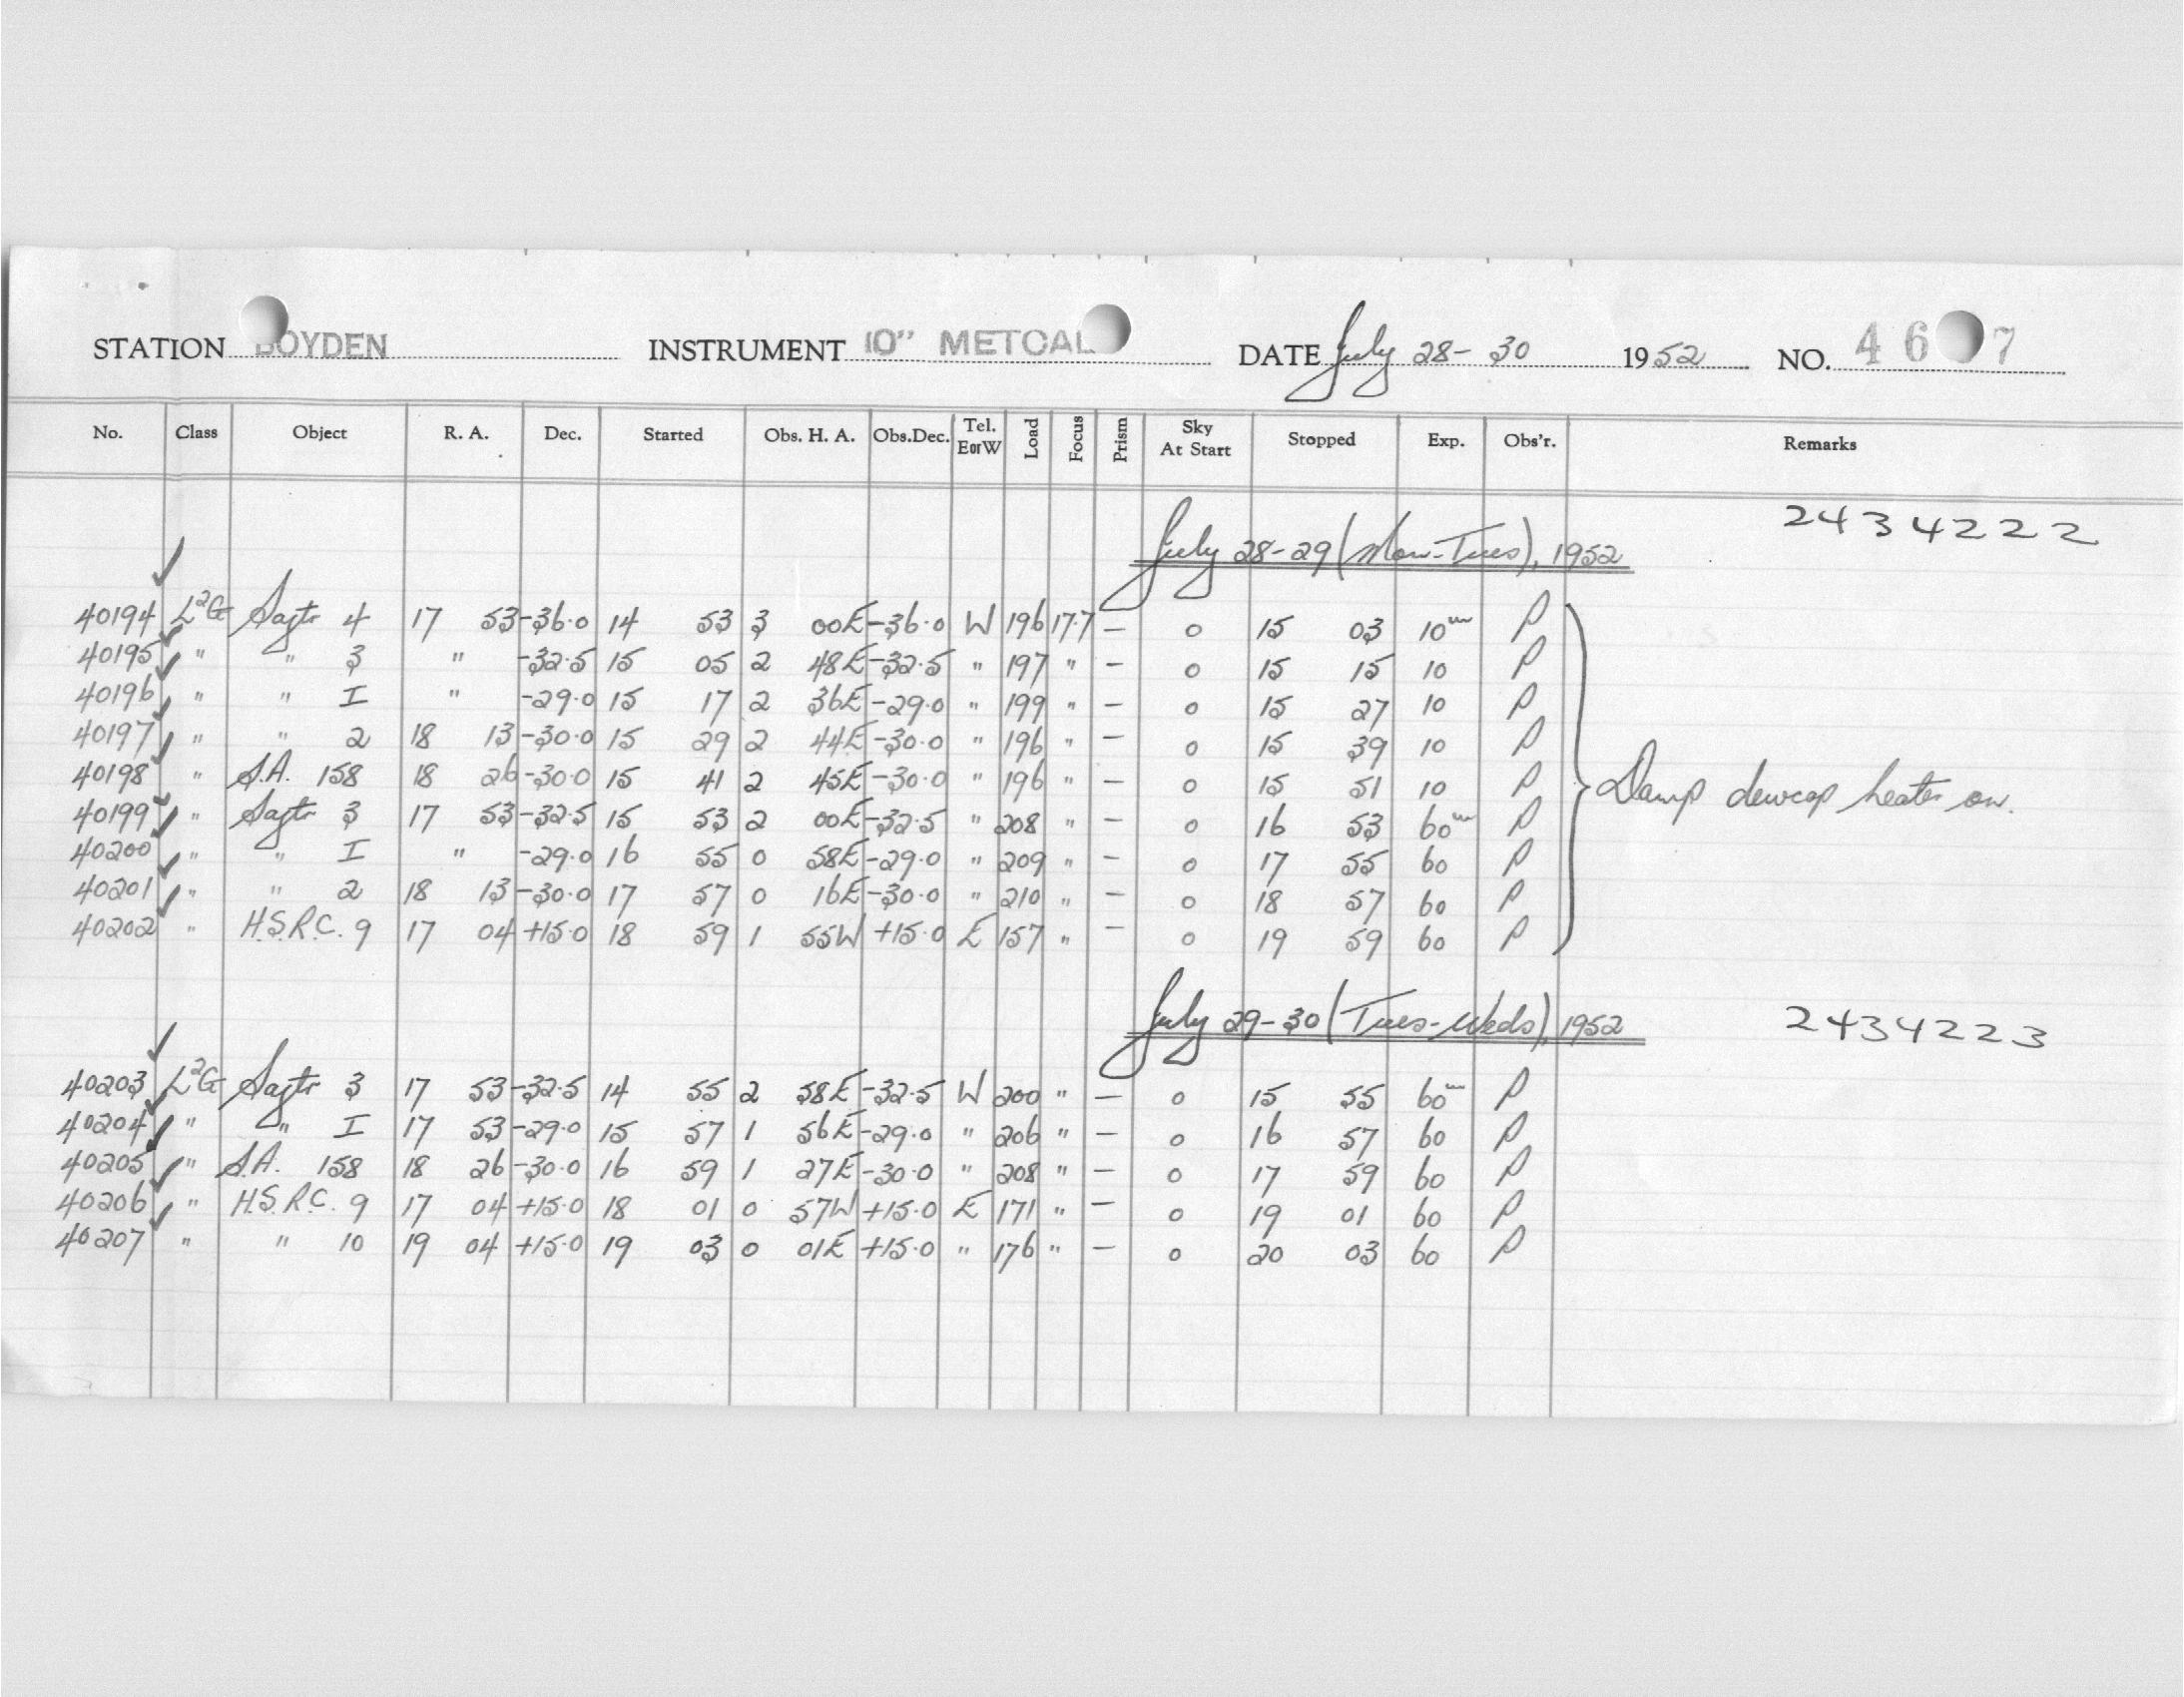 STATION BOYDEN INSTRUMENT 10" METCAL DATE July 28-30 1952 NO. 46 7
No. Class Object R. A. Dec. Started Obs. H. A. Obs.Dec. Tel. EorW Load Focus Prism Sky At Start Stopped Exp. Obs'r. Remarks
July 28-29 (Mon-Tues), 1952 2434222
40194 L²G Sagtr 4 17 53 -36.0 14 53 3 00E -36.0 W 196 17.7 — 0 15 03 10m P
40195 " " 3 " -32.5 15 05 2 48E -32.5 " 197 " — 0 15 15 10 P
40196 " " I " -29.0 15 17 2 36E -29.0 " 199 " — 0 15 27 10 P
40197 " " 2 18 13 -30.0 15 29 2 44E -30.0 " 196 " — 0 15 39 10 P
40198 " S.A. 158 18 26 -30.0 15 41 2 45E -30.0 " 196 " — 0 15 51 10 P Damp dewcap heater on.
40199 " Sagtr 3 17 53 -32.5 15 53 2 00E -32.5 " 208 " — 0 16 53 60m P
40200 " " I " -29.0 16 55 0 58E -29.0 " 209 " — 0 17 55 60 P
40201 " " 2 18 13 -30.0 17 57 0 16E -30.0 " 210 " — 0 18 57 60 P
40202 " H.S.R.C. 9 17 04 +15.0 18 59 1 55W +15.0 E 157 " — 0 19 59 60 P
July 29-30 (Tues-Weds), 1952 2434223
40203 L²G Sagtr 3 17 53 -32.5 14 55 2 58E -32.5 W 200 " — 0 15 55 60m P
40204 " " I 17 53 -29.0 15 57 1 56E -29.0 " 206 " — 0 16 57 60 P
40205 " S.A. 158 18 26 -30.0 16 59 1 27E -30.0 " 208 " — 0 17 59 60 P
40206 " H.S.R.C. 9 17 04 +15.0 18 01 0 57W +15.0 E 171 " — 0 19 01 60 P
40207 " " 10 19 04 +15.0 19 03 0 01E +15.0 " 176 " — 0 20 03 60 P